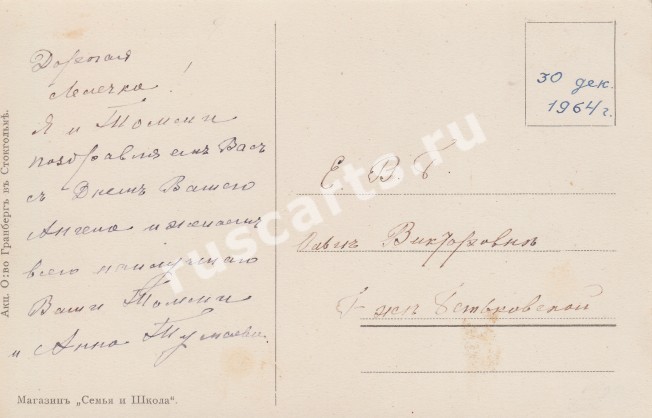 Акц. О:во Гранбергъ въ Стокгольмѣ.
Дорогая
Лелечка!
Я и Томми
поздравляемъ Васъ
съ Днемъ Вашего
Ангела и желаемъ
всего наилучшаго
Ваши Томми
и Анна
Магазинъ „Семья и Школа".
30 дек.
1964 г.
Е. В. Б.
Викторовнѣ
Г-жѣ
ruscarts.ru